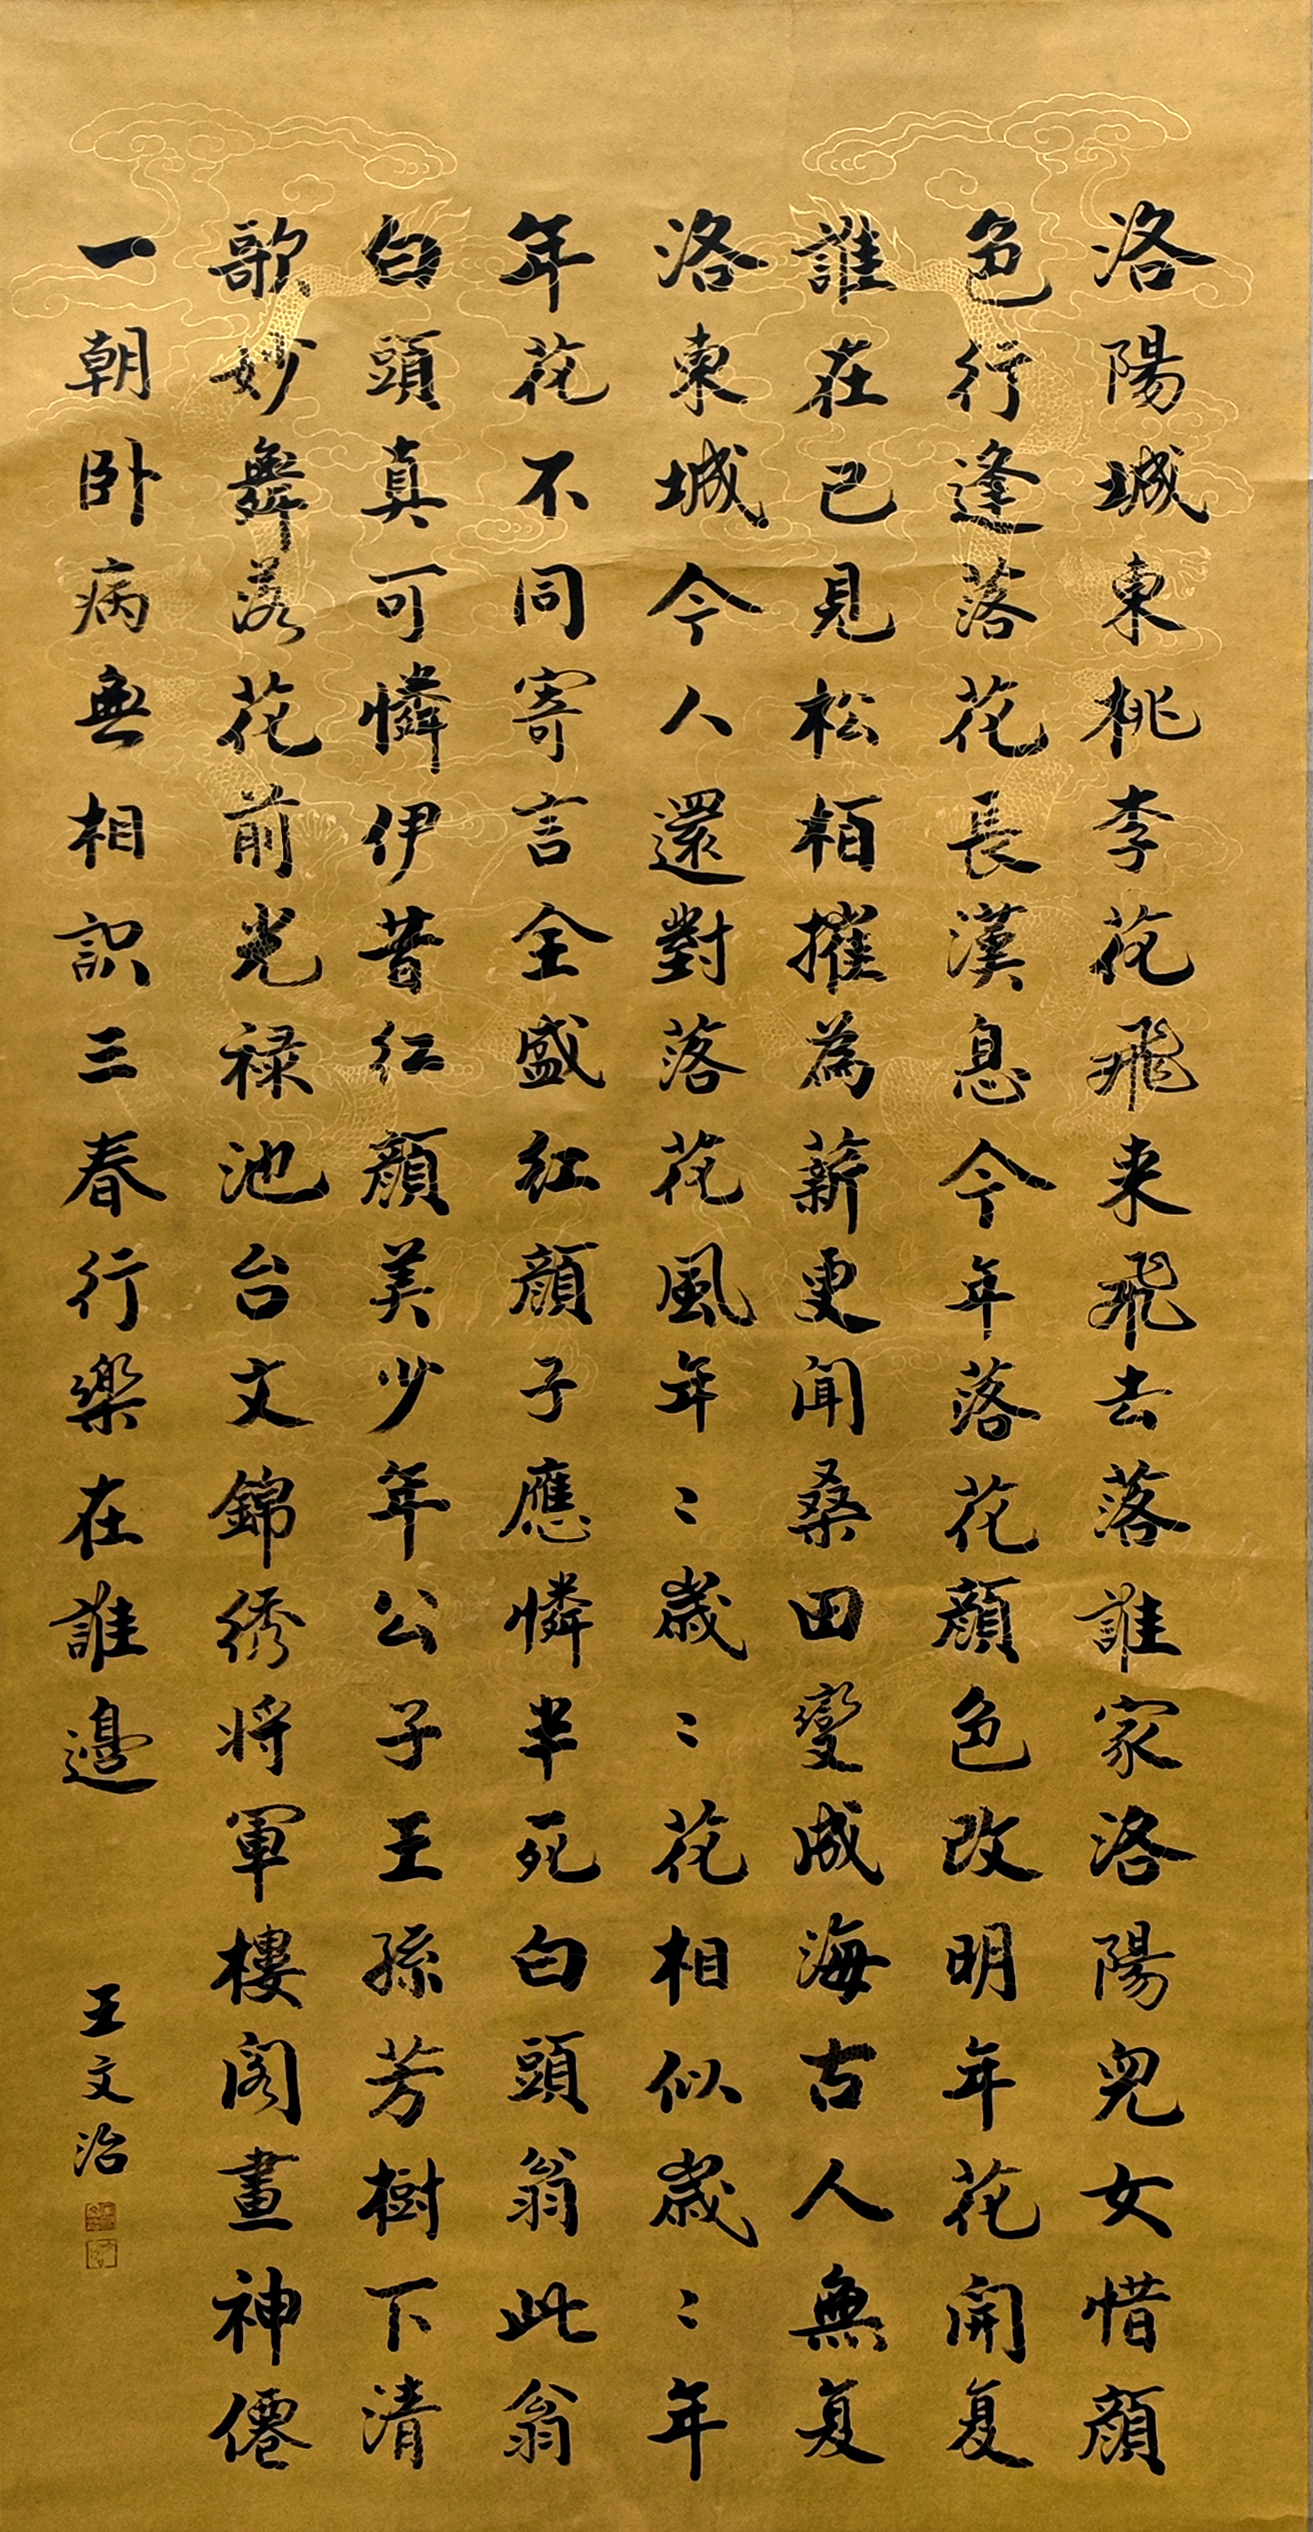 洛陽城東桃李花飛来飛去落誰家洛陽兒女惜顔
色行逢落花長漢息今年落花顔色改明年花開复
誰在已見松栢摧為薪更聞桑田變成海古人無复
洛東城今人還對落花風年年〻歲〻花相似歲〻年
年花不同寄言全盛紅顔子應憐半死白頭翁此翁
白頭真可憐伊昔紅顔美少年公子王孫芳樹下清
歌妙舞落花前光禄池台文錦綉将軍樓閣畫神僊
一朝卧病無相識三春行樂在誰邊
王文治